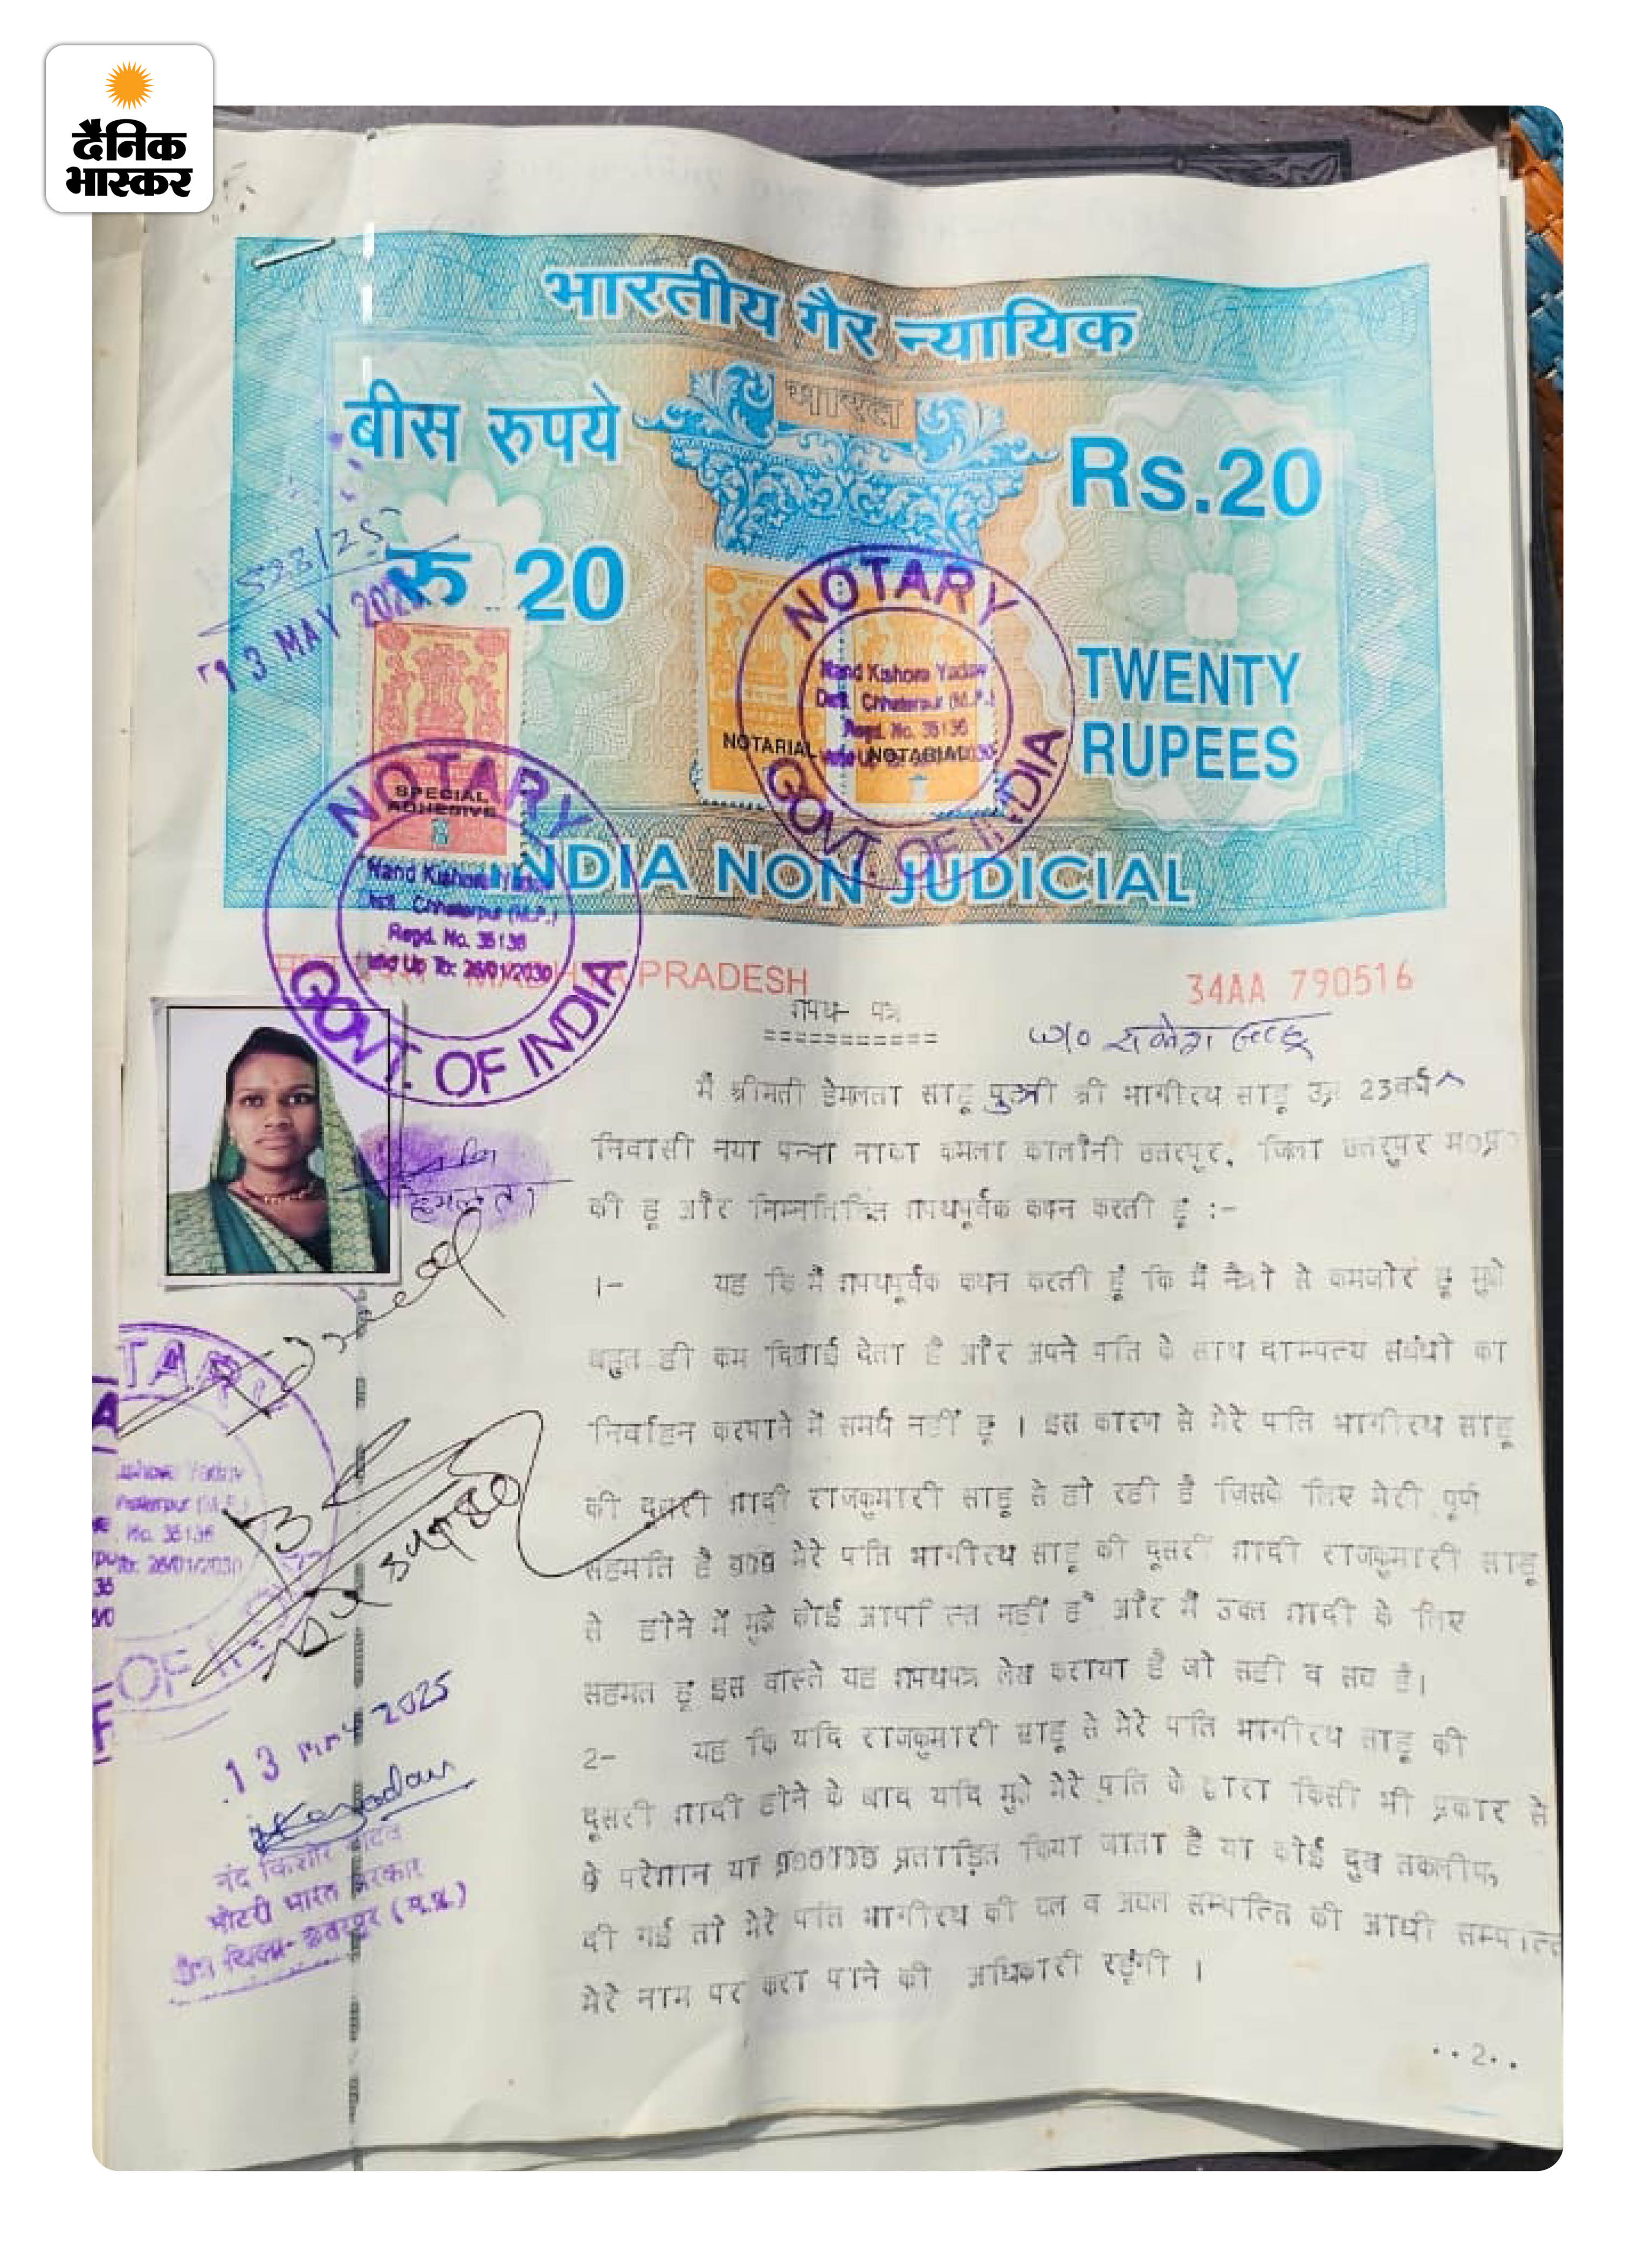 दैनिक
भास्कर
भारतीय गैर न्यायिक
भारत
बीस रुपये
Rs.20
रु 20
523/25
13 MAY 202
TWENTY
RUPEES
NOTARY
Nand Kishore Yadav
Distt. Chhatarpur (M.P.)
Regd. No. 36136
GOVT. OF INDIA
NOTARIAL
NOTARIAL
SPECIAL
ADHESIVE
INDIA NON JUDICIAL
NOTARY
Nand Kishore Yadav
Distt. Chhatarpur (M.P.)
Regd. No. 36136
Valid Up To: 26/01/2030
GOVT. OF INDIA
MADHYA PRADESH
34AA 790516
शपथ- पत्र
===========
w/o
मैं श्रीमती हेमलता साहू पुत्नी श्री भागीरथ साहू उम्र 23वर्ष
निवासी नया पन्ना नाका कमला कालौनी छतरपुर, जिला छतरपुर म0प्र0
की हू और निम्नलिखित शपथपूर्वक कथन करती हूं :-
हेमलता
1- यह कि मैं शपथपूर्वक कथन करती हूं कि मैं नैत्रो से कमजोर हू मुझे
बहुत ही कम दिखाई देता है और अपने पति के साथ दाम्पत्य संबंधो का
निर्वाहन करपाने में समर्थ नहीं हू । इस कारण से मेरे पति भागीरथ साहू
की दूसरी शादी राजकुमारी साहू से हो रही है जिसके लिए मेरी पूर्ण
सहमति है मेरे पति भागीरथ साहू की दूसरी शादी राजकुमारी साहू
से होने में मुझे कोई आपत्ति नहीं है और मैं उक्त शादी के लिए
सहमत हू इस वास्ते यह शपथपत्र लेख कराया है जो सही व सच है।
2- यह कि यदि राजकुमारी साहू से मेरे पति भागीरथ साहू की
दूसरी शादी होने के बाद यदि मुझे मेरे पति के द्वारा किसी भी प्रकार से
परेशान या प्रताड़ित किया जाता है या कोई दुख तकलीफ
दी गई तो मेरे पति भागीरथ की चल व अचल सम्पत्ति की आधी सम्पत्ति
मेरे नाम पर करा पाने की अधिकारी रहूंगी ।
TAR
Yadav
No. 36136
26/01/2030
OF
13 MAY 2025
नंद किशोर यादव
नोटरी भारत सरकार
जिला- छतरपुर (म.प्र.)
..2..